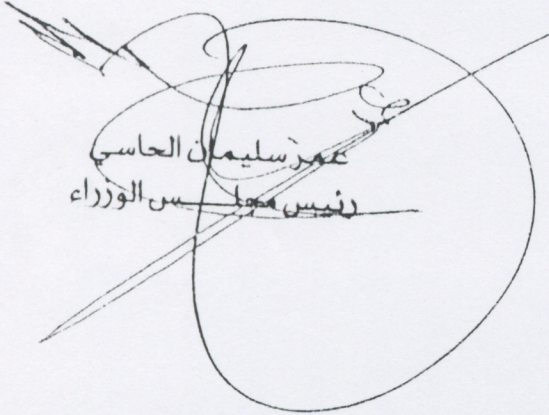 عمر سليمان الحاسي
رئيس مجلس الوزراء